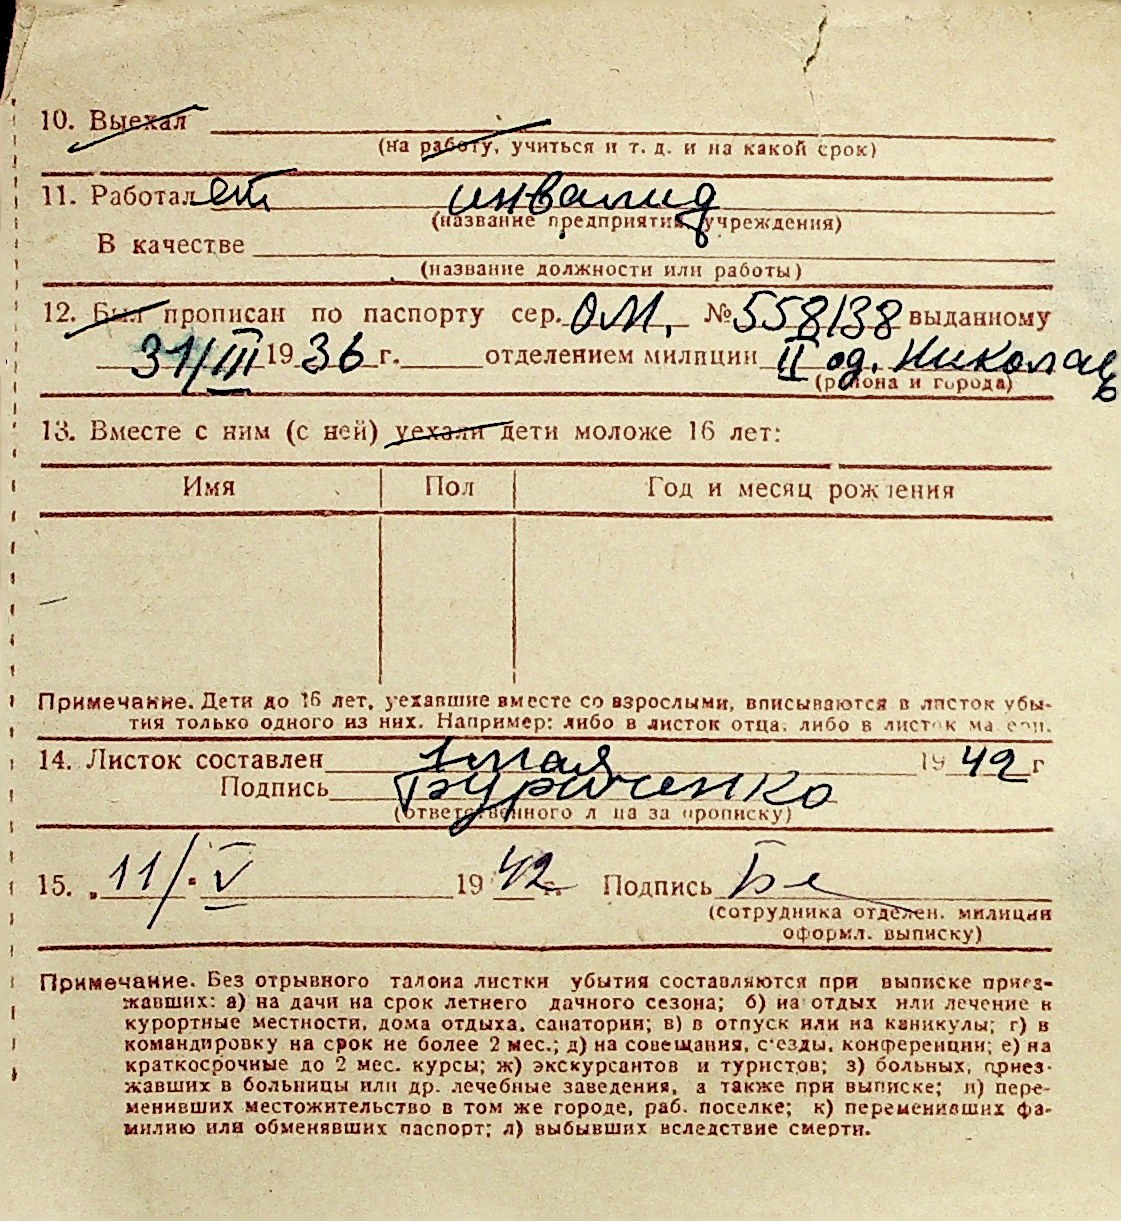 10. Выехал
(на работу, учиться и т. д. и на какой срок)
11. Работает инвалид
(название предприятия, учреждения)
В качестве
(название должности или работы)
12. Был прописан по паспорту сер. ОМ, № 558138 выданному
31/III 1936 г. отделением милиции II од. Николаев
(района и города)
13. Вместе с ним (с ней) уехали дети моложе 16 лет:
Имя Пол Год и месяц рождения
Примечание. Дети до 16 лет, уехавшие вместе со взрослыми, вписываются в листок убы-
тия только одного из них. Например: либо в листок отца, либо в листок матери.
14. Листок составлен 1 мая 1942 г
Подпись
(ответственного лица за прописку)
15. „ 11/V 1942 г. Подпись
(сотрудника отделен. милиции
оформл. выписку)
Примечание. Без отрывного талона листки убытия составляются при выписке приез-
жавших: а) на дачи на срок летнего дачного сезона; б) на отдых или лечение в
курортные местности, дома отдыха, санатории; в) в отпуск или на каникулы; г) в
командировку на срок не более 2 мес.; д) на совещания, съезды, конференции; е) на
краткосрочные до 2 мес. курсы; ж) экскурсантов и туристов; з) больных, приез-
жавших в больницы или др. лечебные заведения, а также при выписке; и) пере-
менивших местожительство в том же городе, раб. поселке; к) переменивших фа-
милию или обменявших паспорт; л) выбывших вследствие смерти.